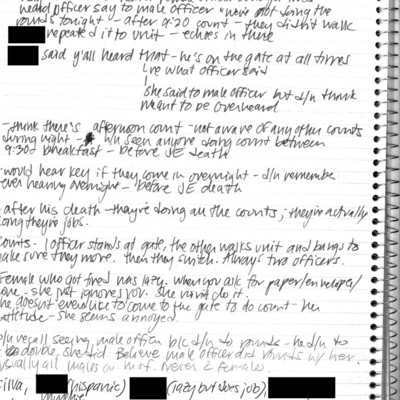 heard officer say to male officer "never not doing the
rounds tonight - after 9:20 count - they didn't walk
repeated it to unit - echoes in there
said y'all heard that - he's on the gate at all times
re what officer said
she said to male officer but d/n think
meant to be overheard
- think there's afternoon count - not aware of any other counts
during night - h/n seen anyone doing count between
9:30 & breakfast - before JE death
would hear key if they come in overnight - d/n remember
ever hearing overnight - before JE death
after his death - they're doing all the counts; they're actually
doing they're jobs.
counts - 1 officer stands at gate, the other walks unit and bangs to
make sure they move. then they switch. Always two officers.
Female who got fired was lazy. when you ask for paper/envelopes/
- she just ignores you. She won't do it.
she doesn't even like to come to the gate to do count - her
attitude - she seems annoyed.
d/n recall seeing male officer b/c d/n to rounds - had/n to
be double, she did. Believe male officer did rounds w/ her.
usually all males or mf. Never 2 females.
Silva, (hispanic) (lazy but does job),